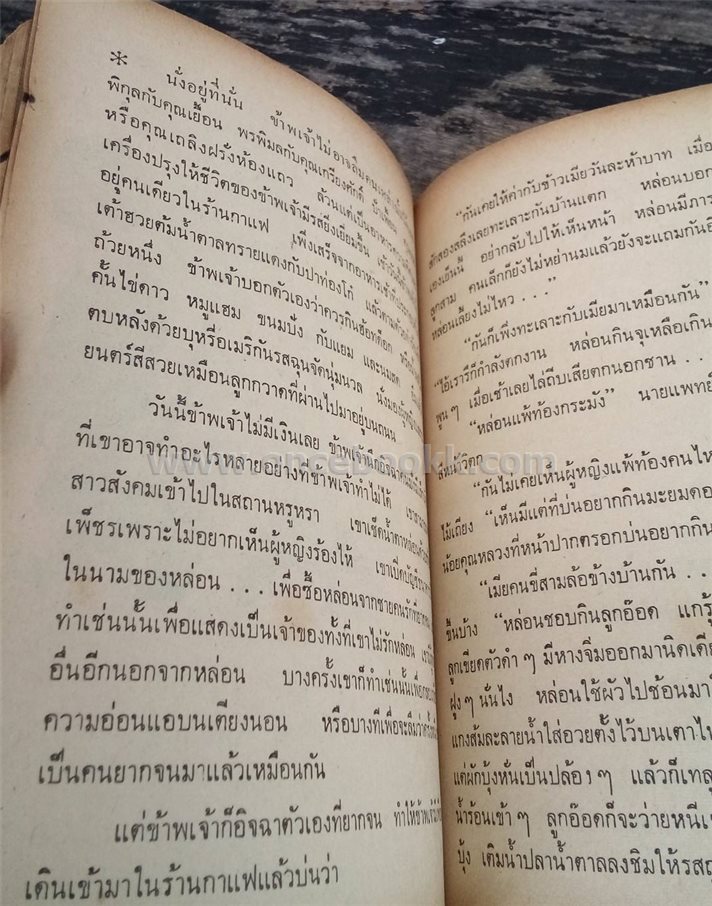 * นั่งอยู่ที่นั่น ข้าพเจ้าไม่อาจลืมคนเหล่านี้
พิกุลกับคุณเยื้อน พรพิมลกับคุณเกรียงศักดิ์
หรือคุณเถลิงฝรั่งห้องแถว ล้วนแต่เป็นอาหาร
เครื่องปรุงให้ชีวิตของข้าพเจ้ามีรสยิ่งเยี่ยมขึ้น เช้าวันนี้
อยู่คนเดียวในร้านกาแฟ เพิ่งเสร็จจากอาหารเช้า
เต้าฮวยต้มน้ำตาลทรายแดงกับปาท่องโก๋ แล้วตาม
ถ้วยหนึ่ง ข้าพเจ้าบอกตัวเองว่าควรกินฮ็อทด็อก
คั้นไข่ดาว หมูแฮม ขนมปัง กับแยม และนมสด
ตบหลังด้วยบุหรี่อเมริกันรสฉุนจัดนุ่มนวล นั่งมอง
ยนตร์สีสวยเหมือนลูกกวาดที่ผ่านไปมาอยู่บนถนน
วันนี้ข้าพเจ้าไม่มีเงินเลย ข้าพเจ้านึกอิจฉา
ที่เขาอาจทำอะไรหลายอย่างที่ข้าพเจ้าทำไม่ได้
สาวสังคมเข้าไปในสถานหรูหรา เขาเช็ดน้ำตาหล่อนด้วย
เพ็ชรเพราะไม่อยากเห็นผู้หญิงร้องไห้ เขาเปิดบัญชี
ในนามของหล่อน . . . เพื่อซื้อหล่อนจากชายคนรัก
ทำเช่นนั้นเพื่อแสดงเป็นเจ้าของทั้งที่เขาไม่รักหล่อน
อื่นอีกนอกจากหล่อน บางครั้งเขาก็ทำเช่นนั้นเพื่อ
ความอ่อนแอบนเตียงนอน หรือบางทีเพื่อจะลืมว่า
เป็นคนยากจนมาแล้วเหมือนกัน
แต่ข้าพเจ้าก็อิจฉาตัวเองที่ยากจน ทำให้ข้าพเจ้า
เดินเข้ามาในร้านกาแฟแล้วบ่นว่า
“กันเคยให้ค่ากับข้าวเมียวันละห้าบาท เมื่อ
สักสองสลึงเลยทะเลาะกันบ้านแตก หล่อนบอก
เองเย็นนี้ อย่ากลับไปให้เห็นหน้า หล่อนมีภาร
ลูกสาม คนเล็กก็ยังไม่หย่านมแล้วยังจะแถมกันอี
หล่อนเลี้ยงไม่ไหว . . .”
“กันก็เพิ่งทะเลาะกับเมียมาเหมือนกัน”
“ไอ้เรารึก็กำลังตกงาน หล่อนกินจุเหลือเกิน
พูนๆ เมื่อเช้าเลยไล่ถีบเสียตกนอกชาน . .
“หล่อนแพ้ท้องกระมัง” นายแพทย์
สีหน้าวิตก
“กันไม่เคยเห็นผู้หญิงแพ้ท้องคนไห
ไม้เถียง “เห็นมีแต่ที่บ่นอยากกินมะยมดอ
น้อยคุณหลวงที่หน้าปากตรอกบ่นอยากกิน
“เมียคนขี่สามล้อข้างบ้านกัน . .
ขึ้นบ้าง “หล่อนชอบกินลูกอ๊อด แกรู้
ลูกเขียดตัวดำๆ มีหางจิ๋มออกมานิดเดีย
ฝูงๆ นั่นไง หล่อนใช้ผัวไปช้อนมาใ
แกงส้มละลายน้ำใส่อวยตั้งไว้บนเตาไ
แค่ผักบุ้งหั่นเป็นปล้องๆ แล้วก็เทลู
น้ำร้อนเข้าๆ ลูกอ๊อดก็จะว่ายหนีเ
บุ้ง เติมน้ำปลาน้ำตาลลงชิมให้รส
www.oncebookk.com